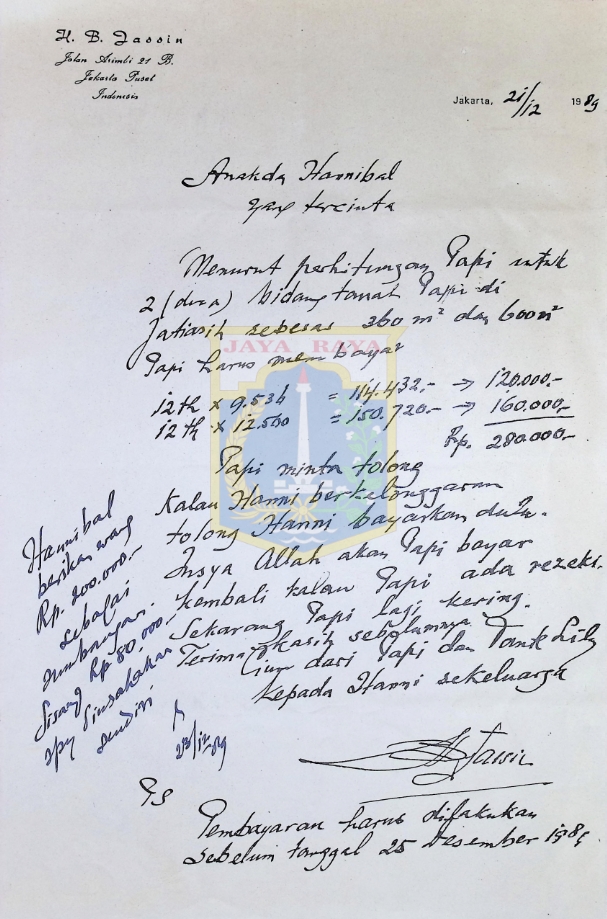 H. B. Jassin
Jalan Arimbi 21 B.
Jakarta Pusat
Indonesia
Jakarta, 21/12 1989
Ananda Hannibal
yang tercinta
Menurut perhitungan Papi untuk
2 (dua) bidang tanah Papi di
Jatiasih sebesar 360 m² dan 600 m²
Papi harus membayar
JAYA RAYA
12 th x 9.534 = 114.432.- → 120.000.-
12 th x 12.560 = 150.720.- → 160.000,-
Rp. 280.000.-
Papi minta tolong
Kalau Hanni berkelonggaran
tolong Hanni bayarkan dulu.
Insya Allah akan Papi bayar
kembali kalau Papi ada rezeki.
Sekarang Papi lagi kering.
Terima kasih sebelumnya.
Cium dari Papi dan Tante Lily
kepada Hanni sekeluarga
HBJassin
Hannibal
berikan uang
Rp. 200.000.-
sebagai
sumbangan.
Sisanya Rp 80.000.-
spy diusahakan
sendiri
23/12-89
PS
Pembayaran harus dilakukan
sebelum tanggal 25 Desember 1989